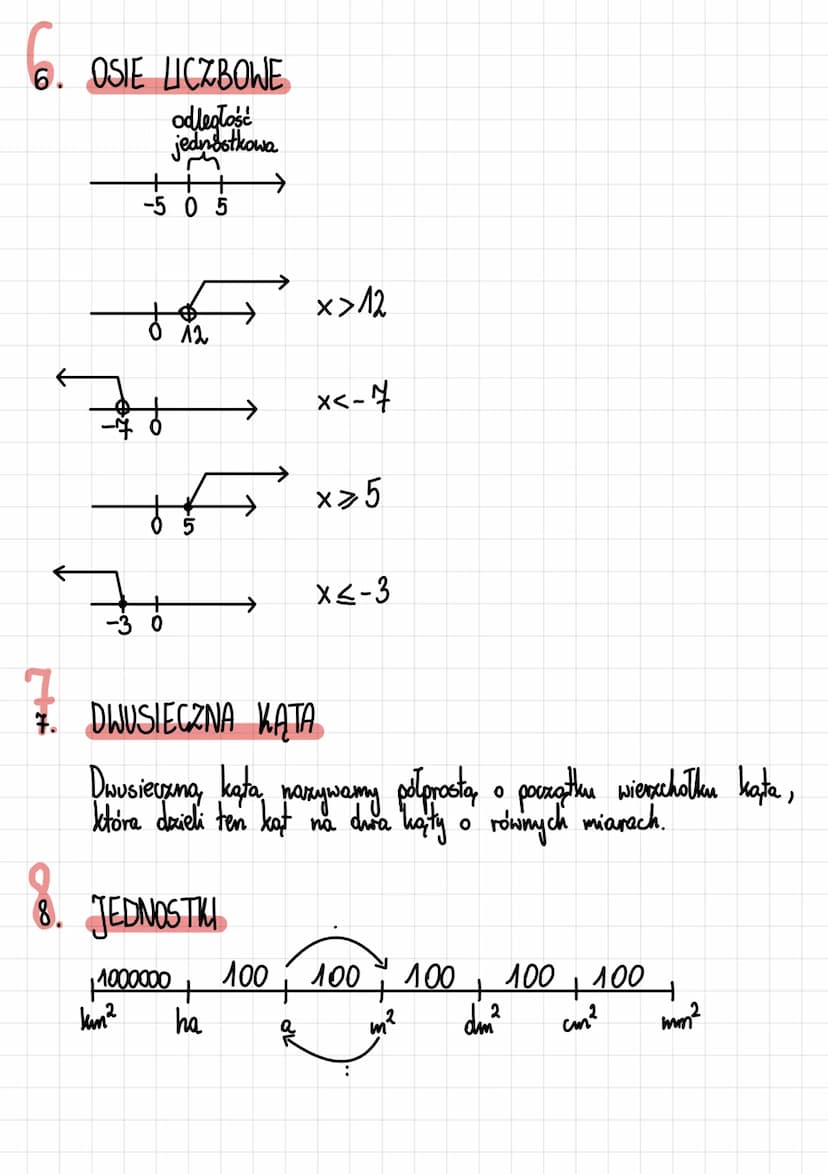 6
6. OSIE LICZBOWE
odległość
jednostkowa
-5 0 5
x>12
0 12
x<-7
-7 0
x⩾5
0 5
x≤-3
-3 0
7
7. DWUSIECZNA KĄTA
Dwusieczną kąta nazywamy półprostą o początku wierzchołku kąta,
która dzieli ten kąt na dwa kąty o równych miarach.
8
8. JEDNOSTKI
·
1000000 100 100 100 100 100
km² ha a m² dm² cm² mm²
: